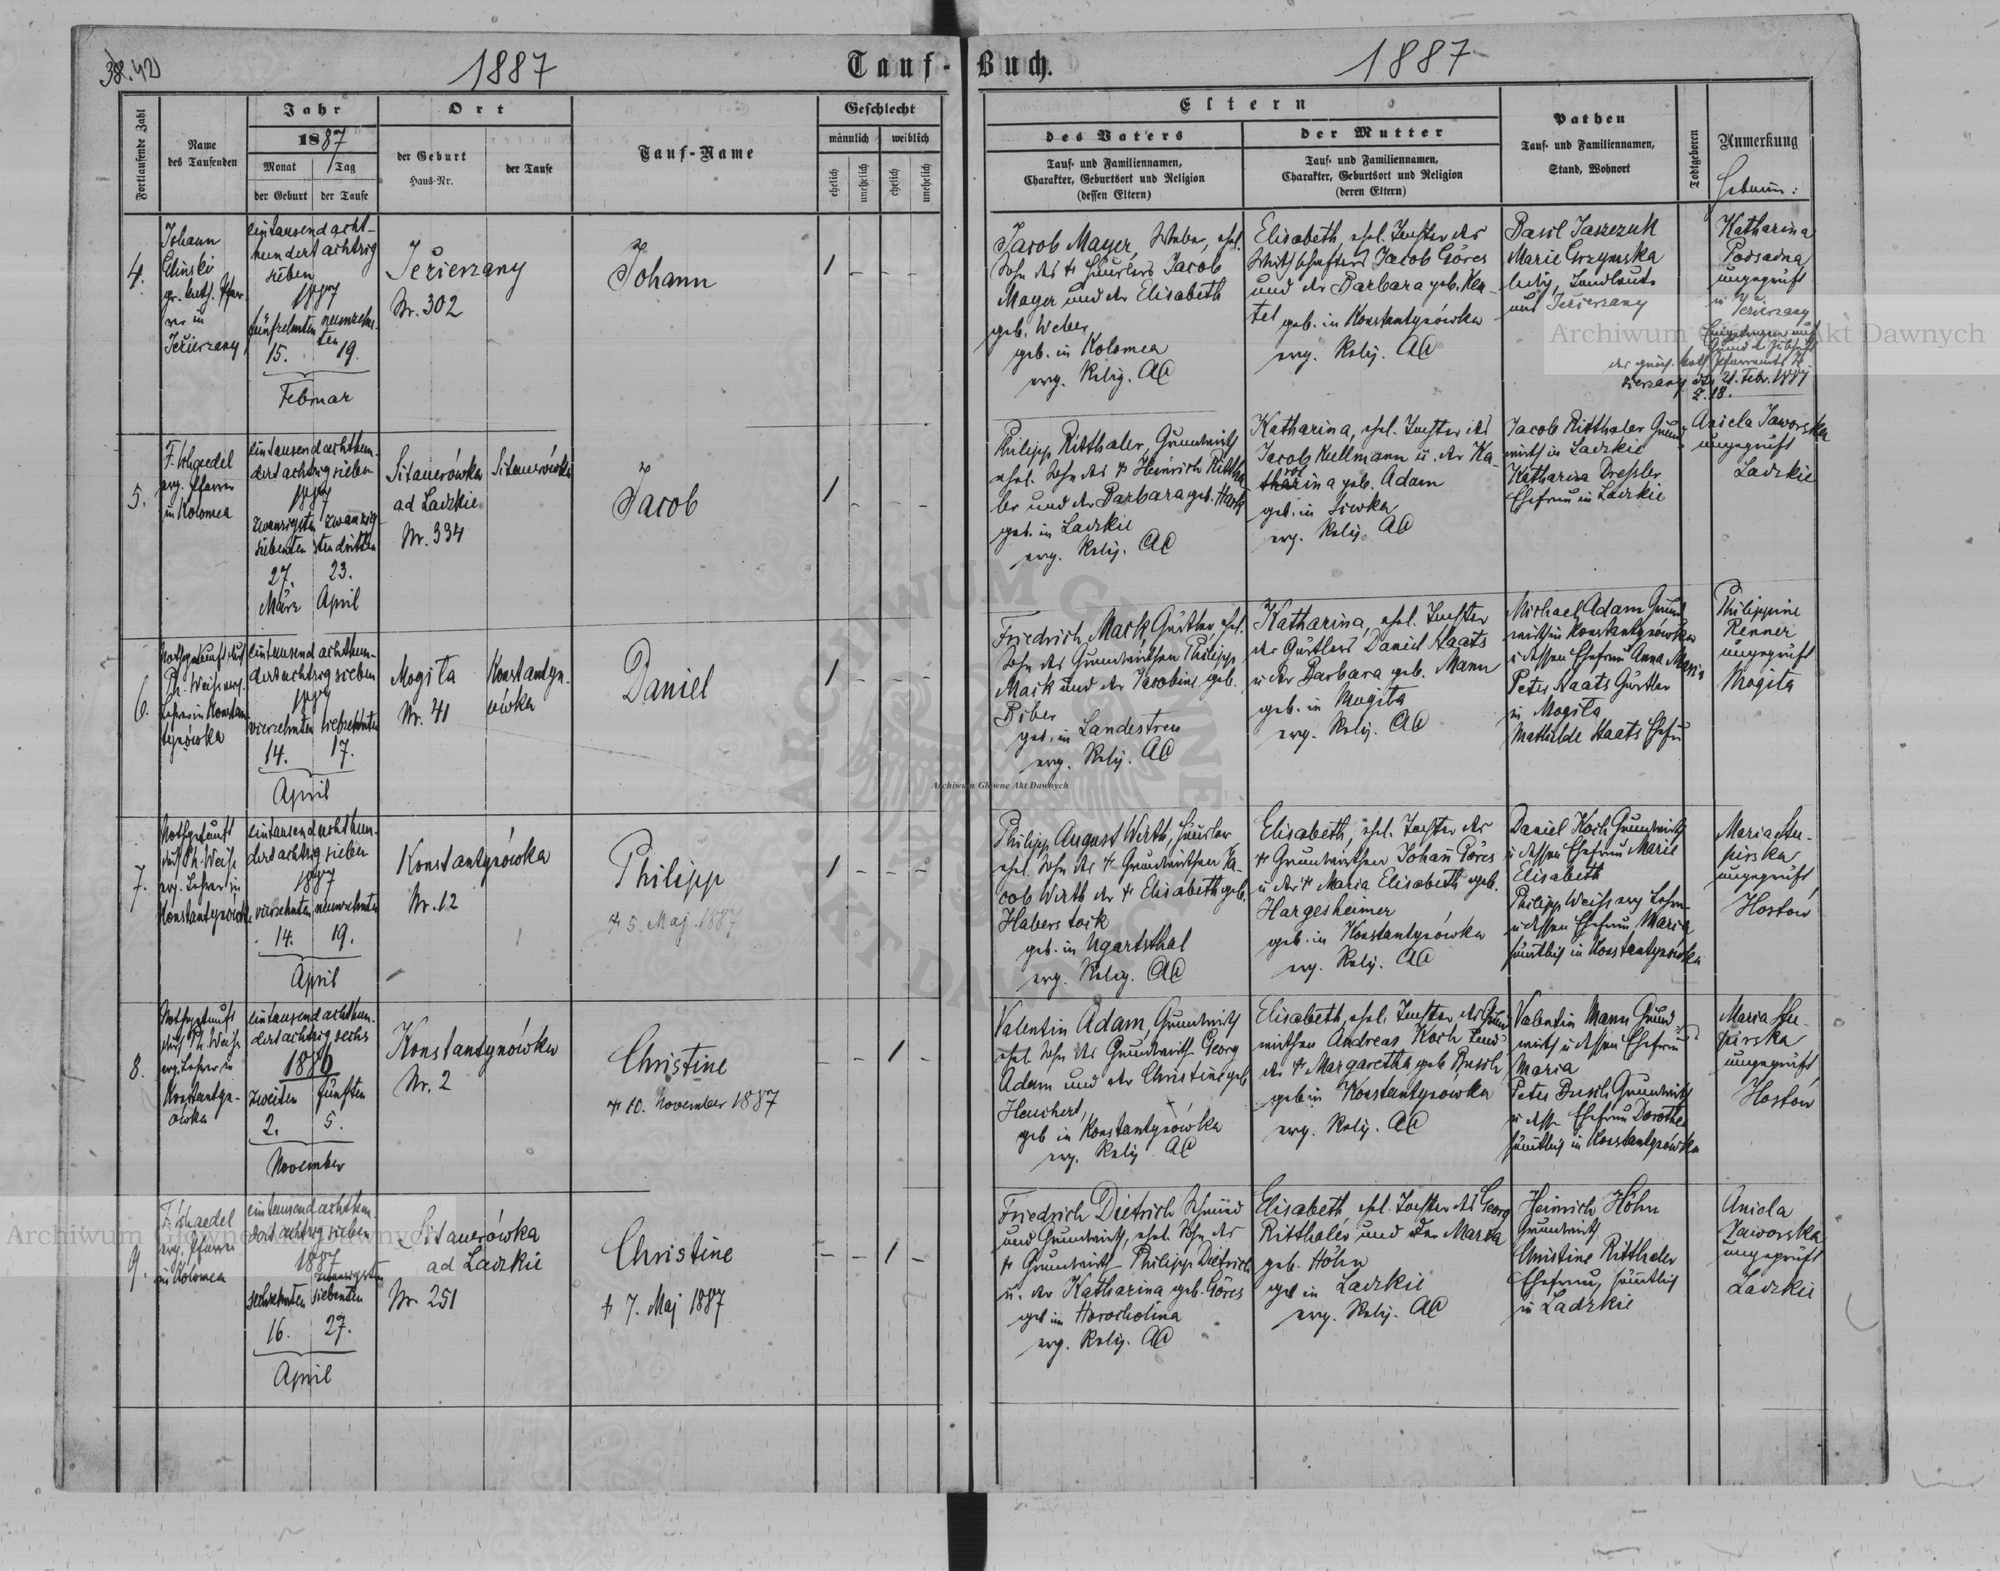 1887
Tauf-Buch.
1887
Fortlaufende Zahl
Name
des Taufenden
Jahr
1887
Monat
Tag
der Geburt
der Taufe
Ort
der Geburt
Haus-Nr.
der Taufe
Tauf-Name
Geschlecht
männlich
weiblich
ehelich
unehelich
ehelich
unehelich
Eltern
des Vaters
Tauf- und Familiennamen,
Charakter, Geburtsort und Religion
(dessen Eltern)
der Mutter
Tauf- und Familiennamen,
Charakter, Geburtsort und Religion
(deren Eltern)
Pathen
Tauf- und Familiennamen,
Stand, Wohnort
Todtgeboren
Anmerkung
4.
Johann
gr. kath. Pfar-
rer in
Jezierzany
eintausend acht-
hundert achtzig
sieben
1887
fünfzehnten neunzehn-
ten
15. 19.
Februar
Jezierzany
Nr. 302
Johann
1 - - -
Jacob Mayer, Weber, ehel.
Sohn des † Häuslers Jacob
Mayer und der Elisabeth
geb. Weber
geb. in Kolomea
evg. Relig. AC
Elisabeth, ehel. Tochter des
Wirthschafters Jacob Göres
und der Barbara geb. Kea-
tel geb. in Konstantynówka
evg. Relig. AC
Basil Jaszczuk
Marie Grzymska
ledig, Landleute
aus Jezierzany
Katharina
Podsadna
ungeprüft
in
Jezierzany
21. Febr. 1887
Z. 18.
5.
F. Schaedel
evg. Pfarrer
in Kolomea
eintausend achthun-
dert achtzig sieben
1887
zwanzigsten zwanzig-
siebenten sten dritten
27. 23.
März April
Sitauerówka
ad Ladzkie
Nr. 334
Sitauerówka
Jacob
1 - -
Philipp Ritthaler, Grundwirth
ehel. Sohn des † Heinrich Rittha-
ler und der Barbara geb. Hack
geb. in Ladzkie
evg. Relig. AC
Katharina, ehel. Tochter des
Jacob Kullmann u. der Ka-
tharina geb. Adam
geb. in Siwka
evg. Relig. AC
Jacob Ritthaler Grund-
wirth in Ladzkie
Katharina Dressler
Ehefrau in Ladzkie
Aniela Jaworska
ungeprüft
Ladzkie
6.
Nothgetauft durch
Ph. Weiss evg.
Lehrer in Konstan-
tynówka
eintausend achthun-
dert achtzig sieben
1887
vierzehnten siebzehnten
14. 17.
April
Mogila
Nr. 41
Konstantyn-
ówka
Daniel
1 - - -
Friedrich Mack, Gärtler ehel.
Sohn des Grundwirthen Philipp
Mack und der Jacobine geb.
Biber
geb. in Landestreu
evg. Relig. AC
Katharina, ehel. Tochter
des Gärtlers Daniel Staats
u der Barbara geb. Mann
geb. in Mogila
evg. Relig. AC
Michael Adam Grund-
wirth in Konstantynówka
u dessen Ehefrau Anna Maria
Peter Staats Gärtler
in Mogila
Mathilde Staats Ehefr.
Philippine
Renner
ungeprüft
Mogila
7.
Nothgetauft
durch Ph. Weiss
evg. Lehrer in
Konstantynówka
eintausend achthun-
dert achtzig sieben
1887
vierzehnten neunzehnten
14. 19.
April
Konstantynówka
Nr. 12
Philipp
† 5. Maj. 1887
1 - - -
Philipp August Wirth, Häusler
ehel. Sohn des † Grundwirthen Ja-
cob Wirth der † Elisabeth geb.
Haberstock
geb. in Ugartsthal
evg. Relig. AC
Elisabeth, ehel. Tochter des
† Grundwirthen Johann Göres
u der † Maria Elisabeth geb.
Hargesheimer
geb. in Konstantynówka
evg. Relig. AC
Daniel Koch Grundwirth
u dessen Ehefrau Marie
Elisabeth
Philipp Weiss evg Lehrer
u dessen Ehefrau Maria
sämtlich in Konstantynówka
Maria Stu-
pirska
ungeprüft
Hostów
8.
Nothgetauft
durch Ph. Weiss
evg. Lehrer in
Konstantyn-
ówka
eintausend achthun-
dert achtzig sechs
1886
zweiten fünften
2. 5.
November
Konstantynówka
Nr. 2
Christine
† 10. November 1887
- - 1 -
Valentin Adam, Grundwirth
ehel. Sohn des Grundwirth Georg
Adam und der Christine geb
Henchert
geb in Konstantynówka
evg. Relig AC
Elisabeth, ehel. Tochter des Grund-
wirthen Andreas Koch und
der † Margaretha geb Busch
geb in Konstantynówka
evg. Relig. AC
Valentin Mann Grund-
wirth u dessen Ehefrau
Maria
Peter Busch Grundwirth
u dessen Ehefrau Dorothea
sämtlich in Konstantynówka
Maria Stu-
pirska
ungeprüft
Hostów
9.
F. Schaedel
evg. Pfarrer
in Kolomea
eintausend achthun-
dert achtzig sieben
1887
zwanzigsten
sechzehnten siebenten
16. 27.
April
Sitauerówka
ad Ladzkie
Nr 251
Christine
† 7. Maj 1887
- - 1 -
Friedrich Dietrich Schmied
und Grundwirth, ehel. Sohn des
† Grundwirth Philipp Dietrich
u. der Katharina geb. Göres
geb in Horocholina
evg. Relig. AC
Elisabeth ehel. Tochter des Georg
Ritthaler und der Maria
geb. Höhn
geb in Ladzkie
evg. Relig. AC
Heinrich Höhn
Grundwirth
Christine Ritthaler
Ehefrau, sämtlich
in Ladzkie
Aniela
Jaworska
ungeprüft
Ladzkie
Archiwum Główne Akt Dawnych
Archiwum Główne Akt Dawnych
Archiwum Główne Akt Dawnych
ARCHIWUM GŁÓWNE AKT DAWNYCH